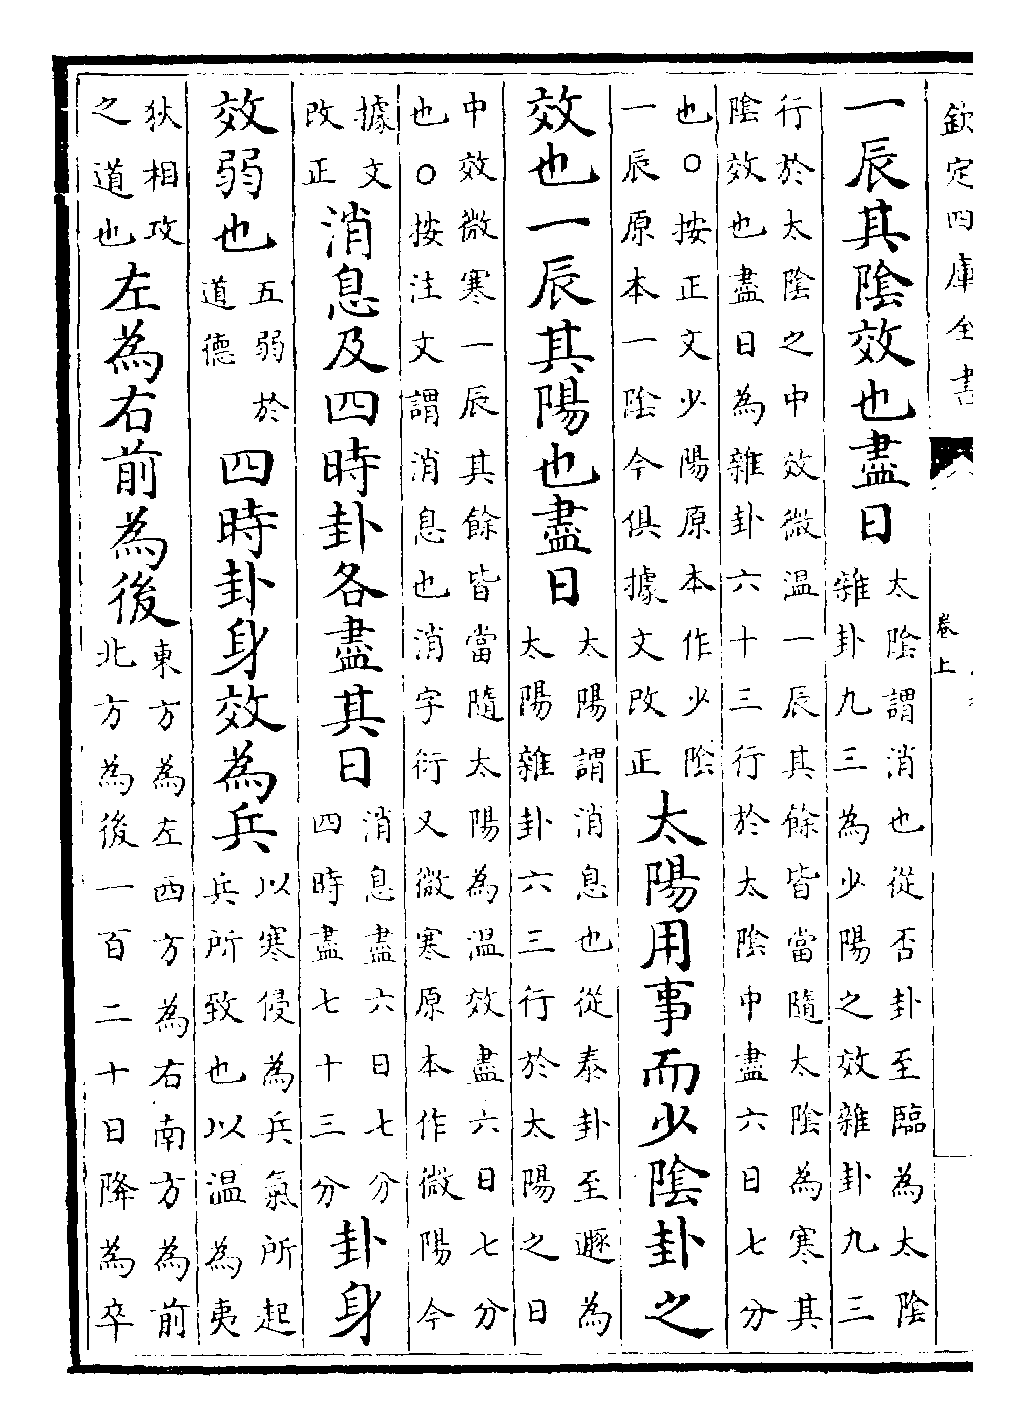 欽定四庫全書
卷上
一辰其陰效也盡日
太陰謂消也從否卦至臨為太陰
雜卦九三為少陽之效雜卦九三
行於太陰之中效微温一辰其餘皆當隨太陰為寒其
陰效也盡日為雜卦六十三行於太陰中盡六日七分
也○按正文少陽原本作少陰
一辰原本一陰今俱據文改正
太陽用事而少陰卦之
效也一辰其陽也盡日
太陽謂消息也從泰卦至遯為
太陽雜卦六三行於太陽之日
中效微寒一辰其餘皆當隨太陽為温效盡六日七分
也○按注文謂消息也消字衍又微寒原本作微陽今
據文
改正
消息及四時卦各盡其日
消息盡六日七分
四時盡七十三分
卦身
效弱也
五弱於
道德
四時卦身效為兵
以寒侵為兵氣所起
兵所致也以温為夷
狄相攻
之道也
左為右前為後
東方為左西方為右南方為前
北方為後一百二十日降為卒